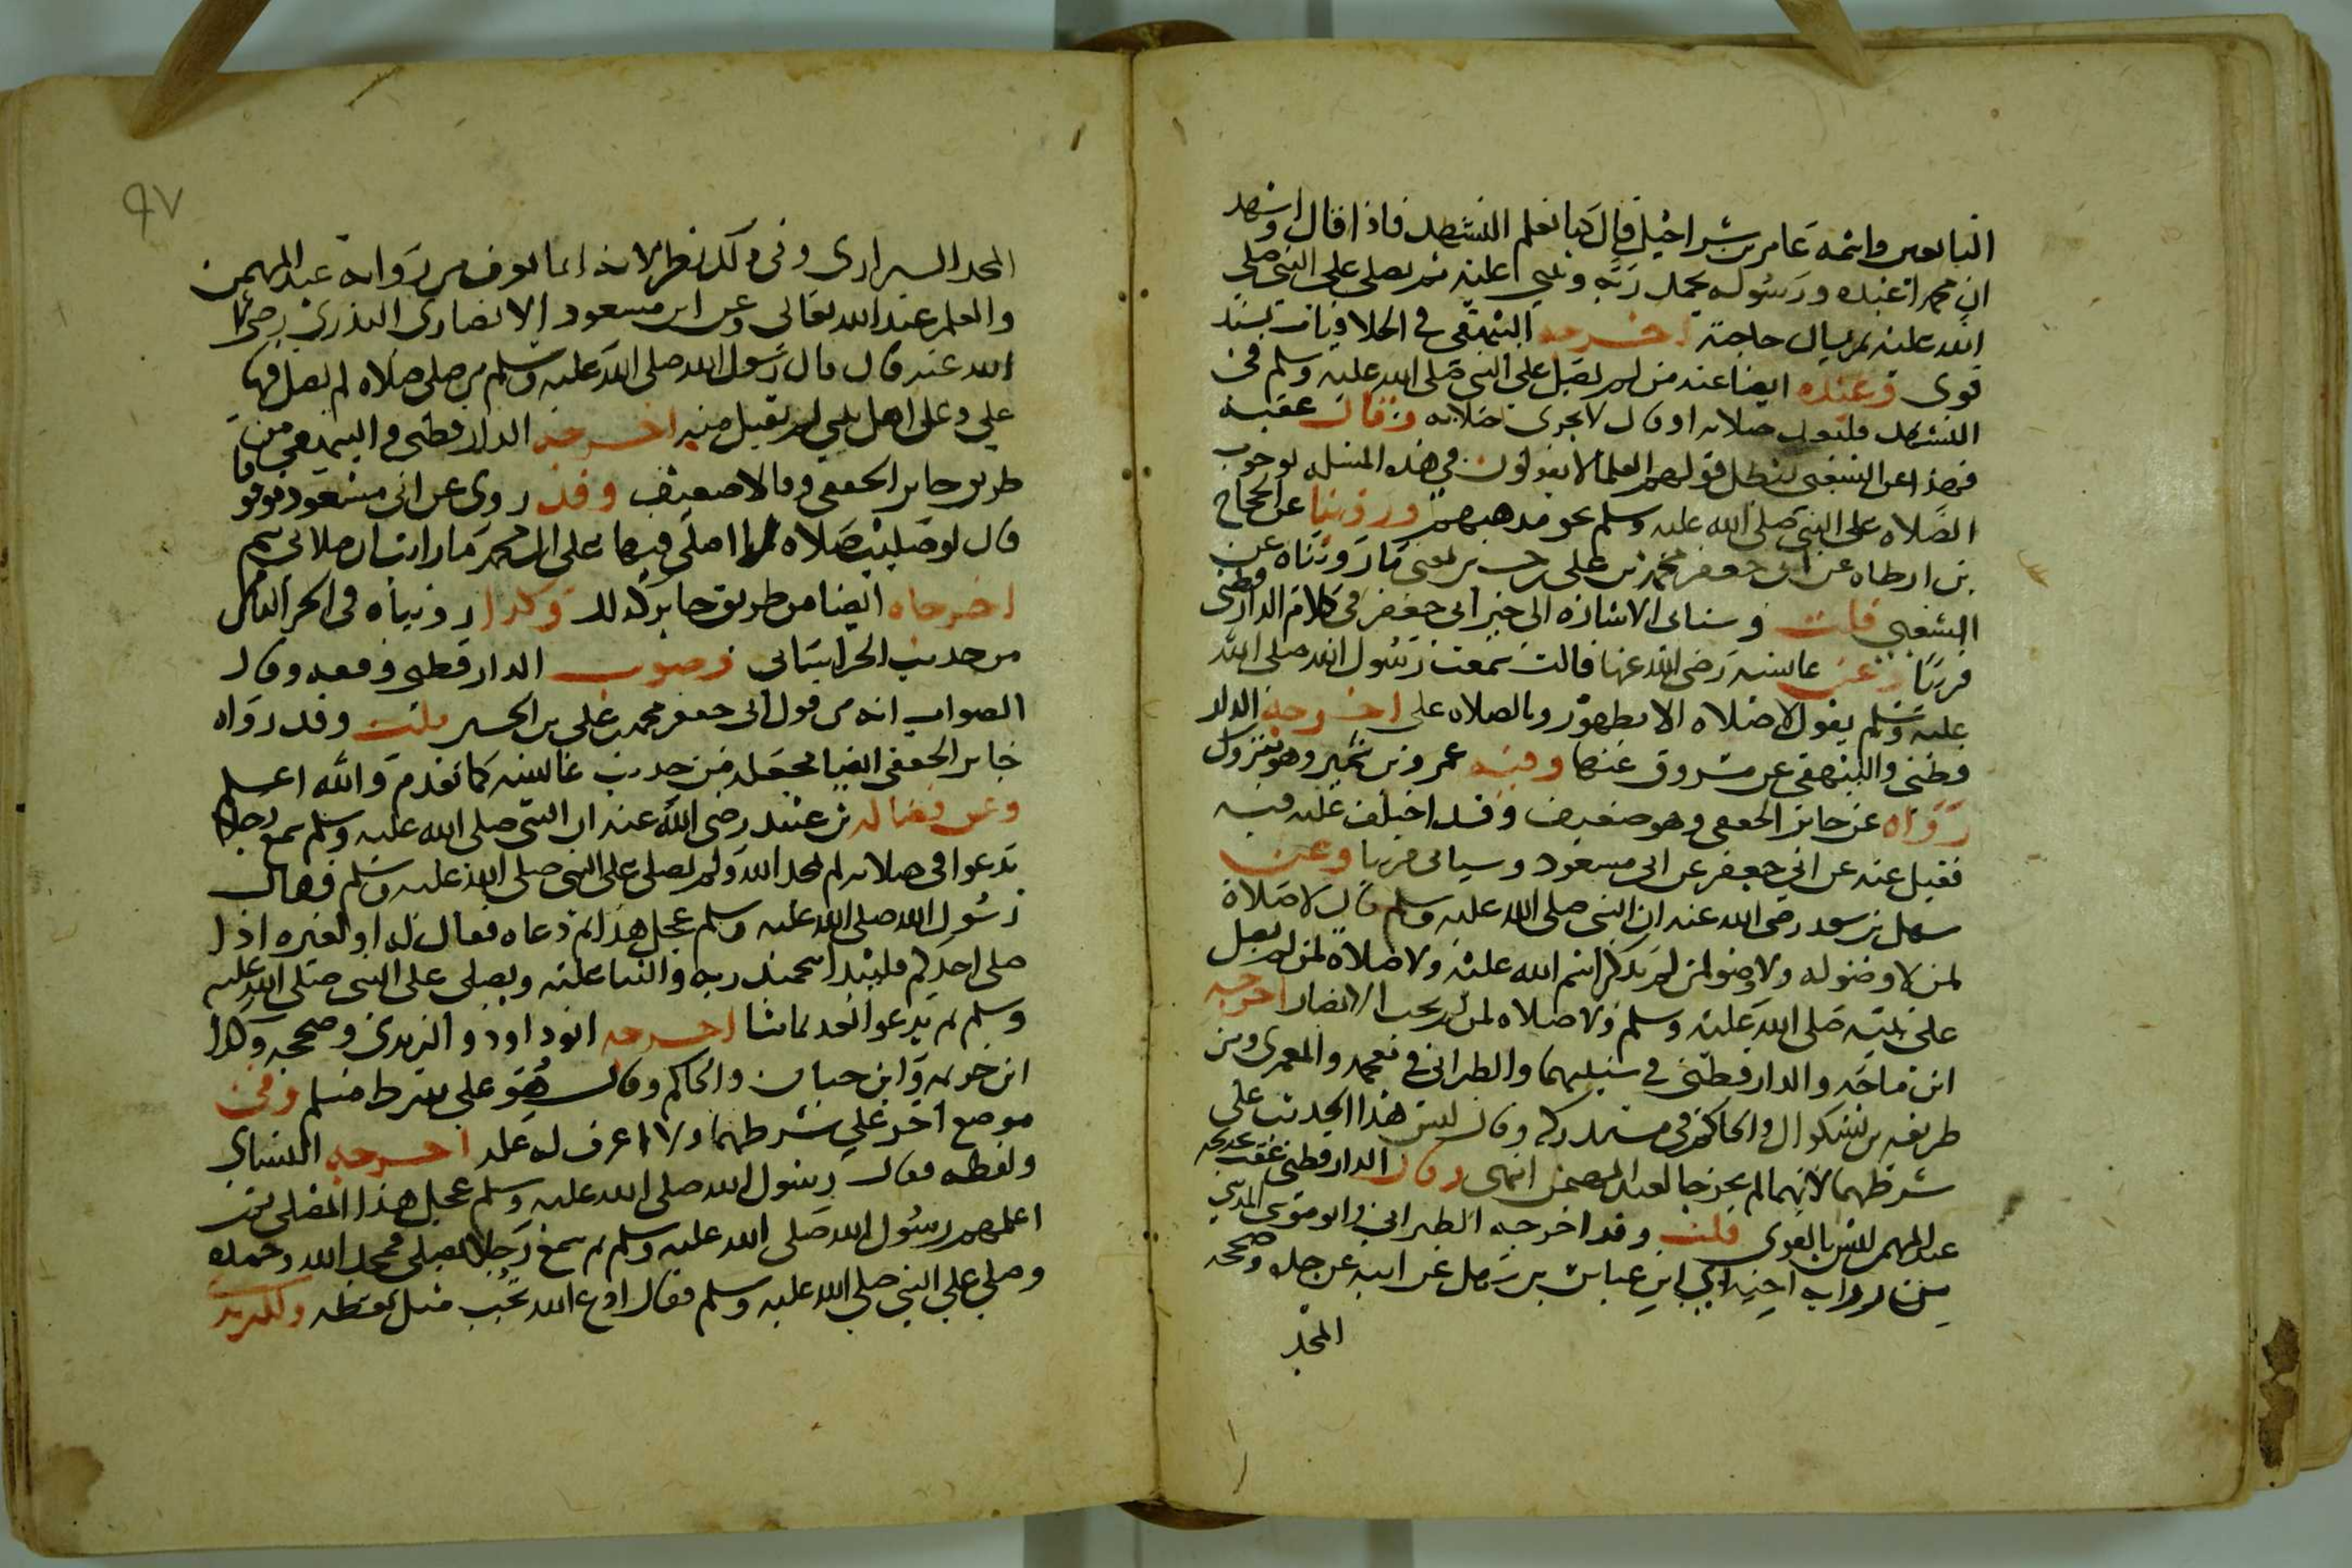 التابعين وائمه عامر بن شراحيل قال كنا نعلم التشهد فاذا قال اشهد
ان محمدا عبده ورسوله يحمد ربه ويثني عليه ثم يصلي على النبي صلى
الله عليه ثم يسال حاجته اخرجه البيهقي في الخلافيات بسند
قوى وعنده ايضا عنه من لم يصل على النبي صلى الله عليه وسلم في
التشهد فليعد صلاته او قال لا تجزى صلاته وقال عقبه
فهذا عن الشعبي يبطل قولهم العلما لا يقولون في هذه المسله بوجوب
الصلاه على النبي صلى الله عليه وسلم نحو مذهبهم وروينا عن الحجاج
بن ارطاه عن ابي جعفر محمد بن علي بن حسين معنى ما رويناه عن
الشعبي قلت وستاتى الاشاره الى خبر ابي جعفر في كلام الدارقطني
قريبا وعن عائشه رضى الله عنها قالت سمعت رسول الله صلى الله
عليه وسلم يقول لا صلاه الا بطهور وبالصلاه علي اخرجه الدار
قطني والبيهقي عن مسروق عنها وفيه عمرو بن شمر وهو متروك
رواه عن جابر الجعفي وهو ضعيف وقد اختلف عليه فيه
فقيل عنه عن ابي جعفر عن ابي مسعود وسياتى قريبا وعن
سهل بن سعد رضى الله عنه ان النبي صلى الله عليه وسلم قال لا صلاة
لمن لا وضو له ولا وضو لمن لم يذكر اسم الله عليه ولا صلاه لمن لم يصل
على نبيه صلى الله عليه وسلم ولا صلاه لمن لم يحب الانصار اخرجه
ابن ماجه والدارقطني في سننيهما والطبراني في معجمه والمعمرى ومن
طريقه بن بشكوال والحاكم في مستدركه وقال ليس هذا الحديث على
شرطهما لانهما لم يخرجا لعبد المهيمن انتهى وقال الدارقطني عقب تخريجه
عبد المهيمن ليس بالقوى قلت وقد اخرجه الطبراني وابو موسى المديني
من روايه اخيه ابي بن عباس بن سهل عن ابيه عن جده وصححه
المجد
٩٧
المجد الشيرازى وفي ذلك نظر لانه انما يعرف من روايه عبد المهيمن
والعلم عند الله تعالى وعن ابي مسعود الانصارى البدرى رضى
الله عنه قال قال رسول الله صلى الله عليه وسلم من صلى صلاه لم يصل فيها
علي وعلى اهل بيتي لم تقبل منه اخرجه الدارقطني والبيهقي من
طريق جابر الجعفي وقالا ضعيف وقد روى عن ابي مسعود موقوفا
قال لو صليت صلاه لا اصلي فيها على ال محمد ما رايت ان صلاتي تتم
اخرجاه ايضا من طريق جابر كذلك وكذا رويناه في الجز الثاني
من حديث الخراساني وصوب الدارقطني وقفه وقال
الصواب انه من قول ابي جعفر محمد بن علي بن الحسين قلت وقد رواه
جابر الجعفي ايضا فجعله من حديث عائشه كما تقدم والله اعلم
وعن فضاله بن عبيد رضى الله عنه ان النبي صلى الله عليه وسلم سمع رجلا
يدعوا في صلاته لم يمجد الله ولم يصلي على النبي صلى الله عليه وسلم فقال
رسول الله صلى الله عليه وسلم عجل هذا ثم دعاه فقال له او لغيره اذا
صلى احدكم فليبدا بتحميد ربه والثنا عليه ويصلي على النبي صلى الله عليه
وسلم ثم يدعوا بعد بما شا اخرجه ابو داود والترمذى وصححه وكذا
ابن خزيمه وابن حبان والحاكم وقال هو على شرط مسلم وفي
موضع اخر على شرطهما ولا اعرف له عله اخرجه النسائي
ولفظه فقال رسول الله صلى الله عليه وسلم عجل هذا المصلي ثم
اعلمهم رسول الله صلى الله عليه وسلم ثم سمع رجلا يصلي فمجد الله وحمده
وصلى على النبي صلى الله عليه وسلم فقال ادع الله تجب وسل تعطه وللترمذي